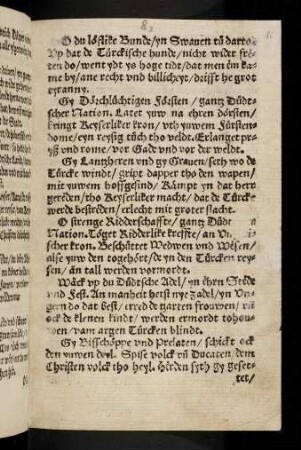 O du löflike Bunde/ yn Swauen tũ darto.
Vp dat de Türckische hunde/ nicht wider fre-
ten do/ went ydt ys hoge tidt/ dat men em ka-
me by/ ane recht vnd billicheyt/ drifft he grot
tyranny.
Gy Dörchlüchtigen Försten/ gantz Düdt-
scher Nation. Latet yuw na ehren dörsten/
bringt Keyserliker kron/ vth yuwem Fürsten-
dome/ eyn reysig tüch tho veldt. Erlanget pryß
vnd rome/ vor Gade vnd vor der weldt.
Gy Lantzheren vnd gy Grauen/ seth wo de
Türcke windt/ gript dapper tho den wapen/
mit yuwem hoffgesind/ Kämpt yn dat her
gereden/ tho Keyserliker macht/ dat de Türck
werde bestreden/ erlecht mit groter slacht.
O strenge Ridderschafft/ gantz Düd
Nation. Töget Ridderlike kreffte/ an
scher kron. Beschüttet Wedwen vnd Wesen/
alse yuw den togehört/ de yn den Türcken rey-
sen/ än tall werden vormordt.
Wäck vp du Düdtsche Adel/ yn ehren Stede
vnd Fest. An manheit hetst nye zadel/ yn Un-
gern do dat best/ errede zarten frouwen/
ock de klenen kindt/ werden ermordt tohou-
wen/ vam argen Türcken blindt.
Gy Bisschöppe vnd Prelaten/ schickt ock
den yuwen deyl. Spise volck vũ Ducaten/ dem
Christen volck tho heyl. Herden syth gy geset-
tet/